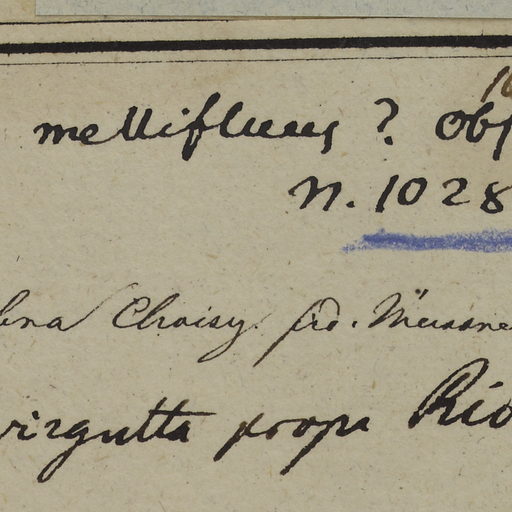 mellifluus ? Obs
N. 1028
Choisy. fid. Meissne
virgulta prope Rio